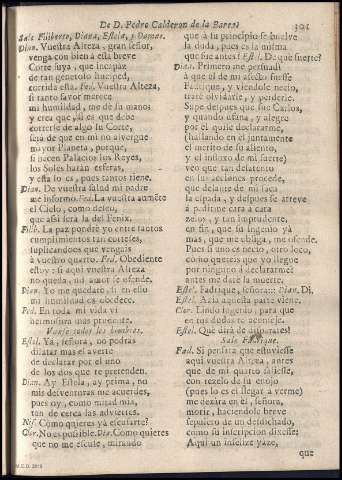 De D. Pedro Calderon de la Barca.
301
Sale Filiberto, Diana, Estela, y Damas.
Dian. Vuestra Alteza, gran señor,
venga con bien à esta breve
Corte suya, que incapaz
de tan generoso huesped,
corrida està. Fed. Vuestra Alteza,
si tanto favor merece
mi humildad, me dè su mano
y crea que, si es que debe
correrse de algo su Corte,
serà de que en mi no alvergue
mayor Planeta, porque,
si hacen Palacios los Reyes,
los Soles haràn esferas,
y esta lo es, pues tantos tiene.
Dian. De vuestra salud mi padre
me informo. Fed. La vuestra aumente
el Cielo, como deseo,
que assi serà la del Fenix.
Filib. La paz pondrè yo entre tantos
cumplimientos tan corteses,
suplicandoos que vengais
à vuestro quarto. Fed. Obediente
estoy: si aqui vuestra Alteza
no queda, mi amor se ofende.
Dian. Yo me quedarè, si en ello
mi humildad os obedece.
Fed. En toda mi vida vi
hermosura mas prudente.
Vanse todos los hombres.
Estel. Yà, señora, no podràs
dilatar mas el averte
de declarar por el uno
de los dos que te pretenden.
Dian. Ay Estela, ay prima, no
mis desventuras me acuerdes,
pues oy, como mirad mia,
tan de cerca las adviertes.
Nis. Còmo quieres ya escusarte?
Clor. No es possible. Dian. Còmo quieres
que no me escuse, mirando
que à su principio se buelve
la duda, pues es la misma
que fue antes? Estel. De què suerte?
Dian. Primero me persuadì
à que el de mi afecto fuesse
Fadrique, y viendole necio,
tratè olvidarle, y perderle.
Supe despues que fue Carlos,
y quando ufana, y alegre
por èl quise declararme,
(hallando en èl juntamente
el merito de su aliento,
y el influxo de mi suerte)
veo que tan desatento
en sus acciones procede,
que delante de mi saca
la espada, y despues se atreve
à pedirme cara à cara
zelos, y tan imprudente,
en fin, que su ingenio yà
mas, que me obliga, me ofende.
Pues si uno es necio, otro loco,
còmo quereis que yo llegue
por ninguno à declararme?
antes me darè la muerte.
Estel. Fadrique, señora::: Dian. Dì.
Estel. Azia aquesta parte viene.
Clor. Lindo ingenio, para que
en tus dudas te aconseje.
Estel. Què dirà de disparates!
Sale Fadrique.
Fad. Si pensàra que estuviesse
aqui vuestra Alteza, antes
que de mi quarto saliesse,
con rezelo de su enojo
(pues lo es el llegar à verme)
me dexàra en èl, señora,
morir, haciendole breve
sepulcro de un desdichado,
como su inscripcion dixesse:
Aqui un infelice yaze,
que
M.C.D. 2015